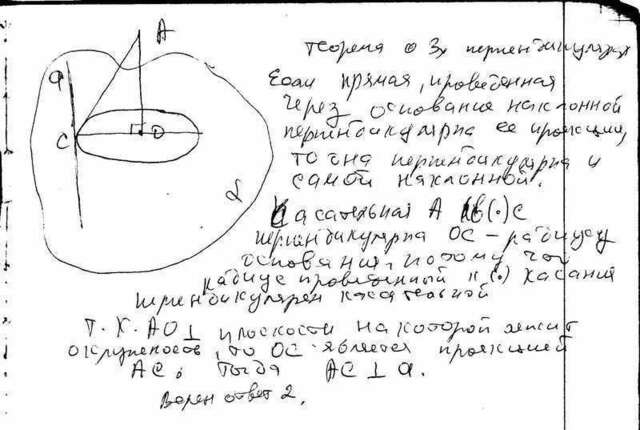 A
a
C
O
α
Теорема о 3х перпендикулярах
Если прямая, проведенная
через основание наклонной
перпендикулярна ее проекции,
то она перпендикулярна и
самой наклонной.
Касательная a в (·) C
перпендикулярна OC – радиусу
основания, потому что
радиус проведенный к (·) касания
перпендикулярен касательной
Т.к. AO ⊥ плоскости на которой лежит
окружность, то OC является проекцией
AC. Тогда AC ⊥ a.
Верен ответ 2.